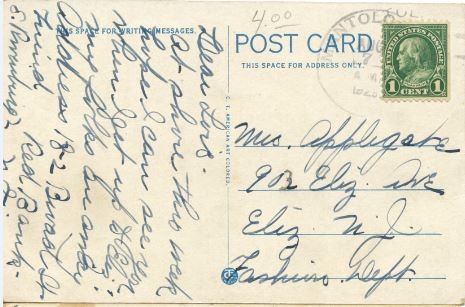 THIS SPACE FOR WRITING MESSAGES.
Dear Lois:
At shore this week
hope I can see you
when I get up
my folks
Address 182 Broad St
Red Bank
N.J.
4.00
POST CARD
THIS SPACE FOR ADDRESS ONLY.
UNITED STATES POSTAGE
1 CENT 1
C. T. AMERICAN ART COLORED.
Mrs. Applegate
903 Eliz. Ave
Eliz. N.J.
Fashion Dept.